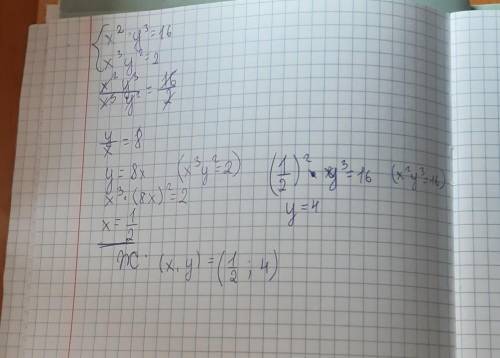 { x² · y³ = 16
x³y² = 2
x²y³ / x³y² = 16 / 2
y/x = 8
y = 8x (x³y² = 2)
x³ · (8x)² = 2
x = 1/2
(1/2)² · y³ = 16 (x²y³ = 16)
y = 4
(x, y) = (1/2 ; 4)